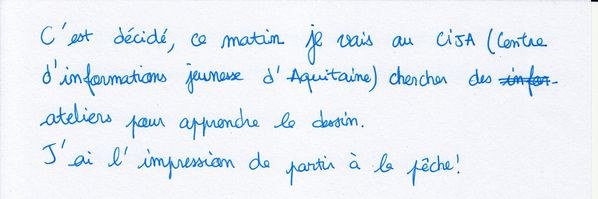 C'est décidé, ce matin je vais au CIJA (Centre
d'informations jeunesse d'Aquitaine) chercher des infor-
ateliers pour apprendre le dessin.
J'ai l'impression de partir à la pêche!